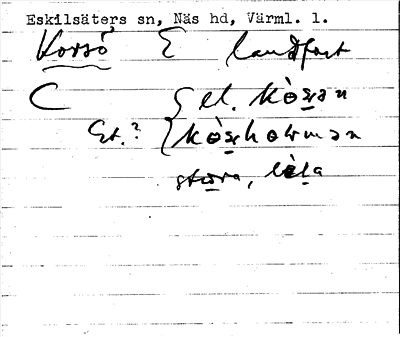 Eskilsäters sn, Näs hd, Värml. l.
Korsö, E landfast
C el. kòsan
Et.? kòsholman
stora, lèla